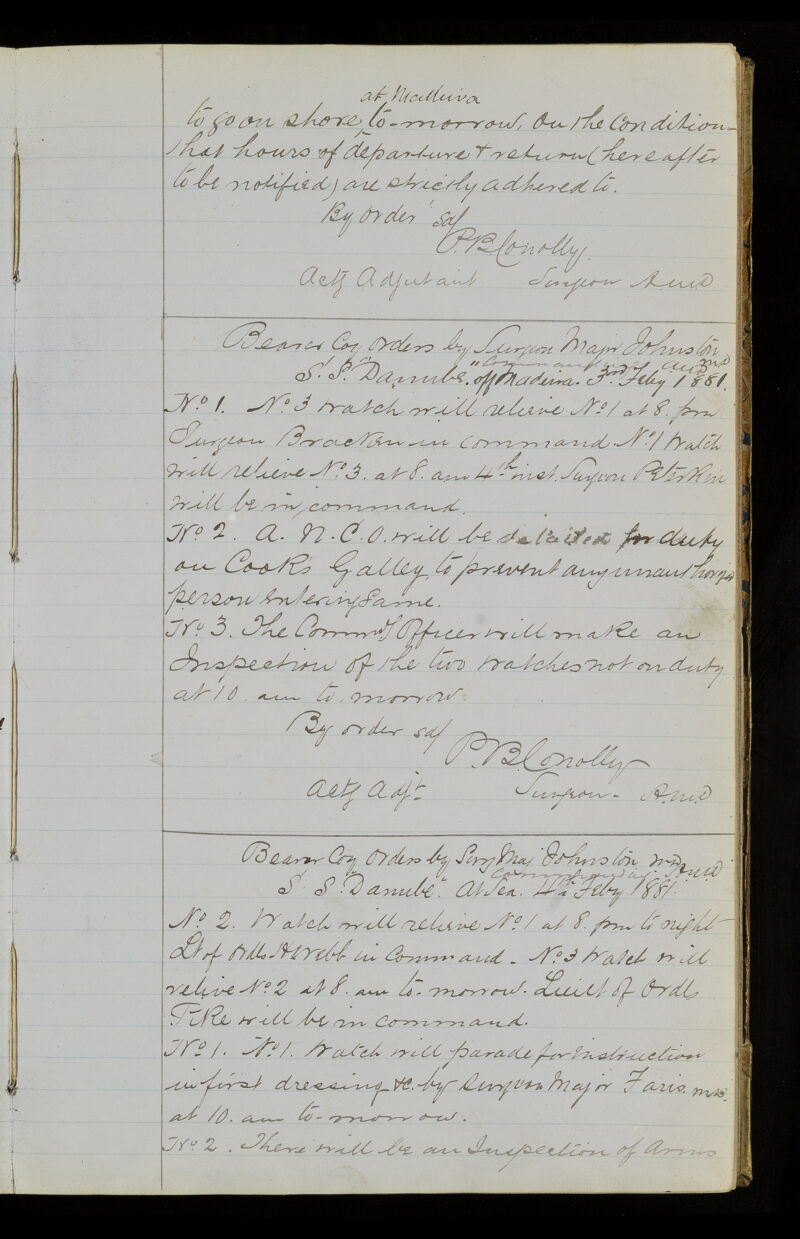 at Madeira
to go on shore to-morrow, on the condition
that hours of departure & return (hereafter
to be notified) are strictly adhered to.
By order sd/
P. B. Conolly.
Actg Adjutant Surgeon A.M.D
Bearer Coy Orders by Surgeon Major Johnston MD
Command AMD
S. S. "Danube" off Madeira. 3rd Feby 1881.
No 1. No 3 Watch will relieve No 1 at 8. pm
Surgeon Bracken in command No 1 Watch
will relieve No 3. at 8. am 4th inst. Surgeon Peterkin
will be in command.
No 2. A. N. C. O. will be detailed for duty
on Cook's Galley to prevent any unauthorized
person entering same.
No 3. The Commg Officer will make an
Inspection of the two watches not on duty
at 10. am to. morrow.
By order sd/
P. B. Conolly
Actg Adjt Surgeon - A.M.D
Bearer Coy Orders by Surg Maj Johnston MD AMD
Commanding
S. S. "Danube". At Sea. 4th Feby. 1881.
No 2. Watch will relieve No 1 at 8. pm to night
Lt of Ords A Webb in command - No 3 Watch will
relive No 2 at 8. am to-morrow. Lieut of Ords
Pike will be in command.
No 1. No 1. Watch will parade for instruction
in first dressing &c. by Surgeon Major Faris. MB.
at 10. am to-morrow.
No 2. There will be an Inspection of Arms